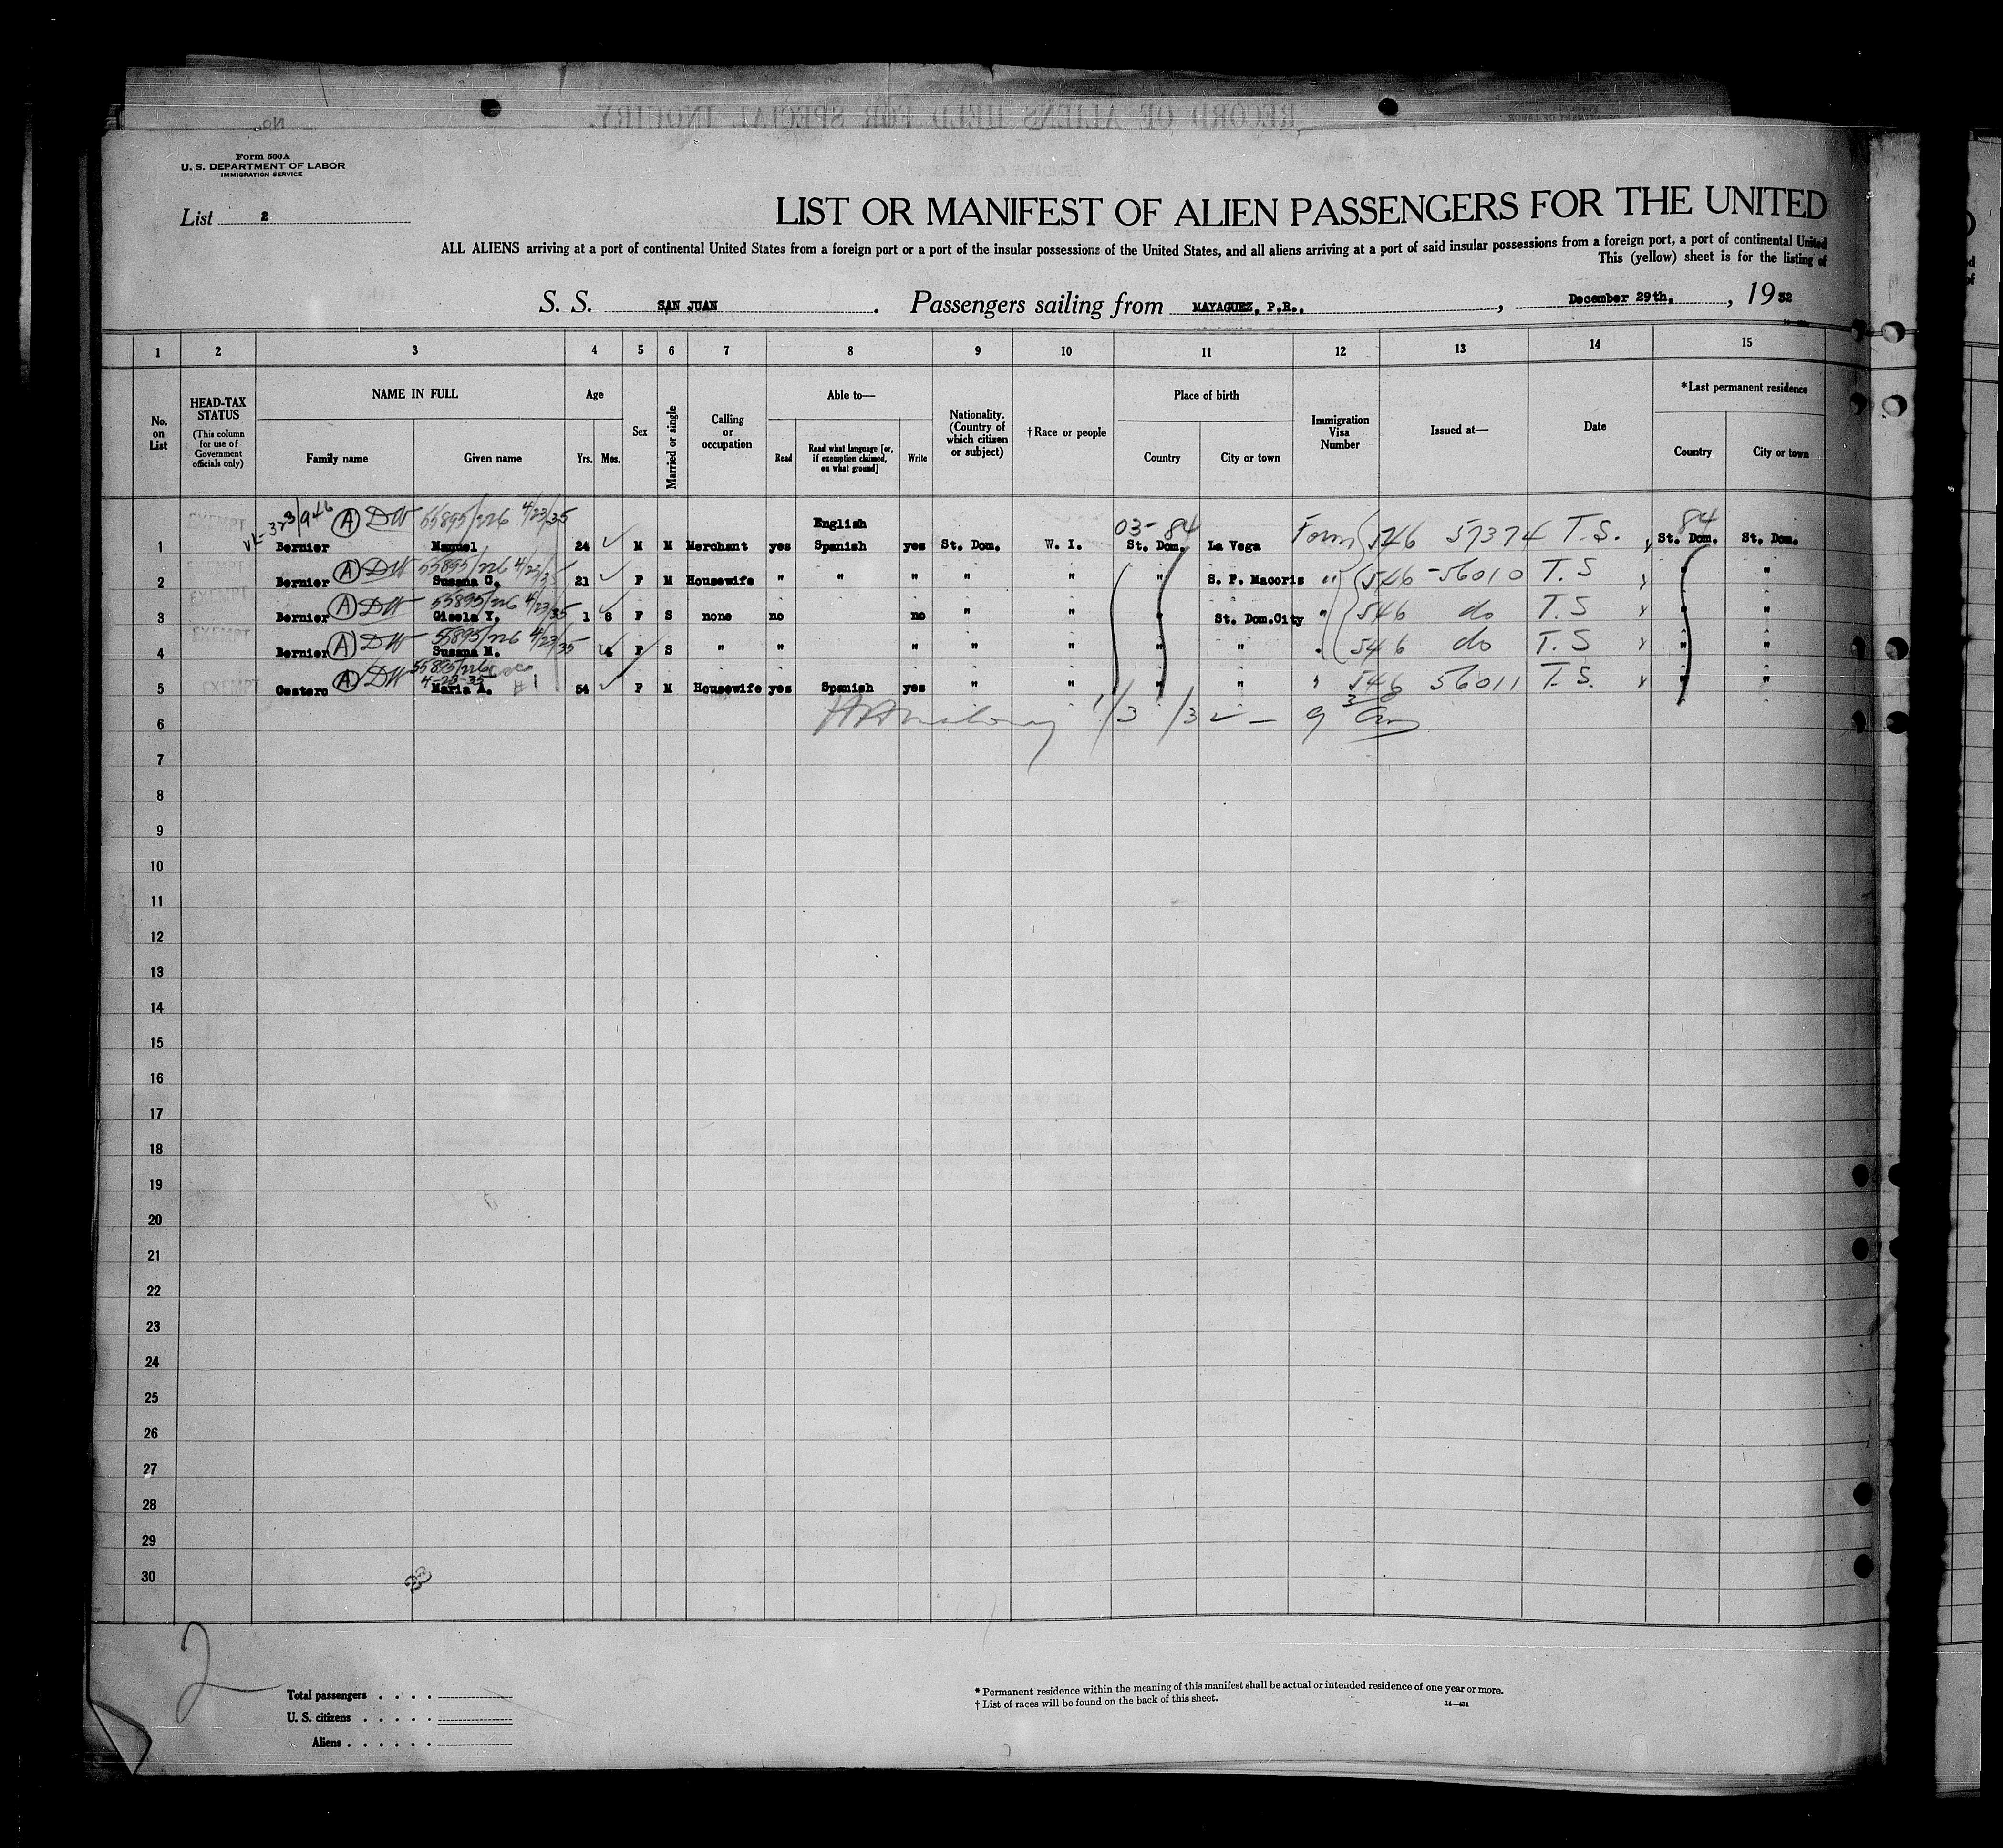 RECORD OF ALIENS HELD FOR SPECIAL INQUIRY.
No.
Form 500A
U. S. DEPARTMENT OF LABOR
IMMIGRATION SERVICE
List 2
LIST OR MANIFEST OF ALIEN PASSENGERS FOR THE UNITED
ALL ALIENS arriving at a port of continental United States from a foreign port or a port of the insular possessions of the United States, and all aliens arriving at a port of said insular possessions from a foreign port, a port of continental United
This (yellow) sheet is for the listing of
S. S. SAN JUAN. Passengers sailing from MAYAGUEZ, P.R., December 29th, 1932
1 2 3 4 5 6 7 8 9 10 11 12 13 14 15
No. on List
HEAD-TAX STATUS (This column for use of Government officials only)
NAME IN FULL Family name Given name
Age Yrs. Mos.
Sex
Married or single
Calling or occupation
Able to— Read Read what language [or, if exemption claimed, on what ground] Write
Nationality. (Country of which citizen or subject)
†Race or people
Place of birth Country City or town
Immigration Visa Number
Issued at—
Date
*Last permanent residence Country City or town
EXEMPT 3/946 A DW 55895/226 4/23/35 English 03-84 84
1 Bernier Manuel 24 M M Merchant yes Spanish yes St. Dom. W. I. St. Dom. La Vega Form 546 57374 T.S. St. Dom. St. Dom.
EXEMPT A DW 55895/226
2 Bernier Susana C. 21 F M Housewife " " " " " " S. P. Macoris " 546-56010 T.S " "
EXEMPT A DW 55895/226 4/23/35
3 Bernier Gisela Y. 1 8 F S none no no " " " St. Dom.City " 546 do T.S " "
EXEMPT A DW 55895/226 4/23/35
4 Bernier Susana M. 4 F S " " " " " " " " 546 do T.S " "
EXEMPT A DW 55895/226 4-23-35 #1
5 Cestero Maria A. 54 F M Housewife yes Spanish yes " " " " " 546 56011 T.S. " "
6
7
8
9
10
11
12
13
14
15
16
17
18
19
20
21
22
23
24
25
26
27
28
29
30
2
Total passengers . . . .
U. S. citizens . . . . .
Aliens . . . . . .
* Permanent residence within the meaning of this manifest shall be actual or intended residence of one year or more.
† List of races will be found on the back of this sheet.
14—431